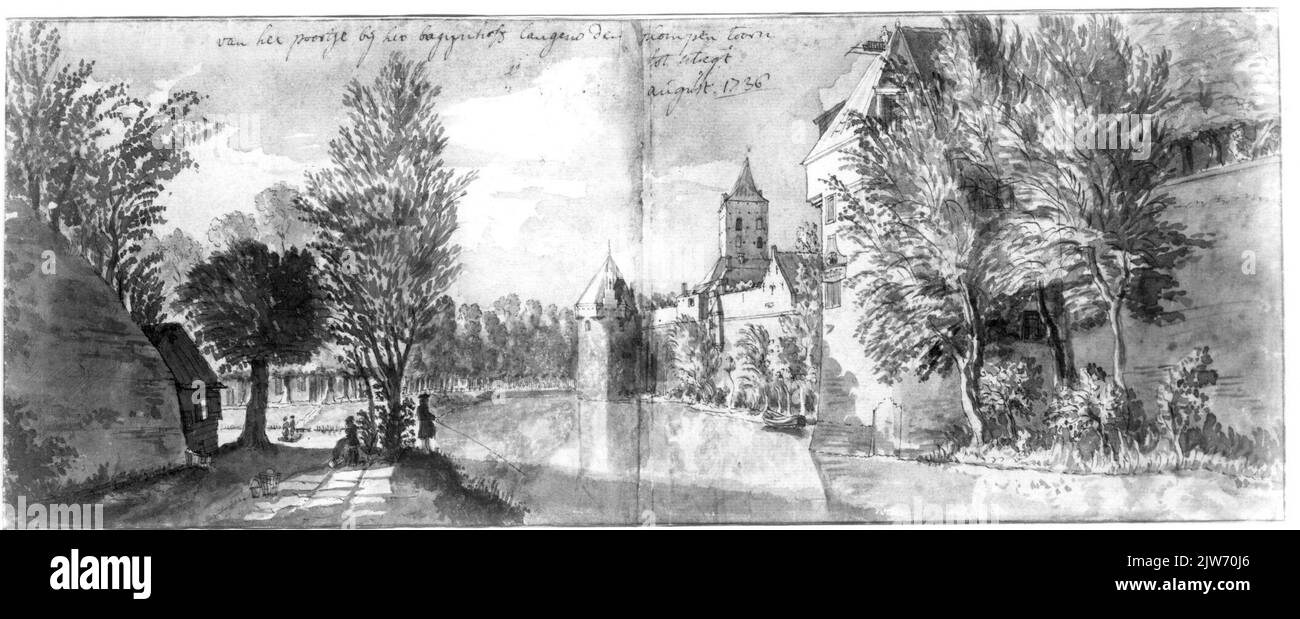 van het poortje bij het bagijnhofs langens den plompen toorn
tot utregt
august. 1736
alamy
alamy
Image ID: 2JW70J6
www.alamy.com